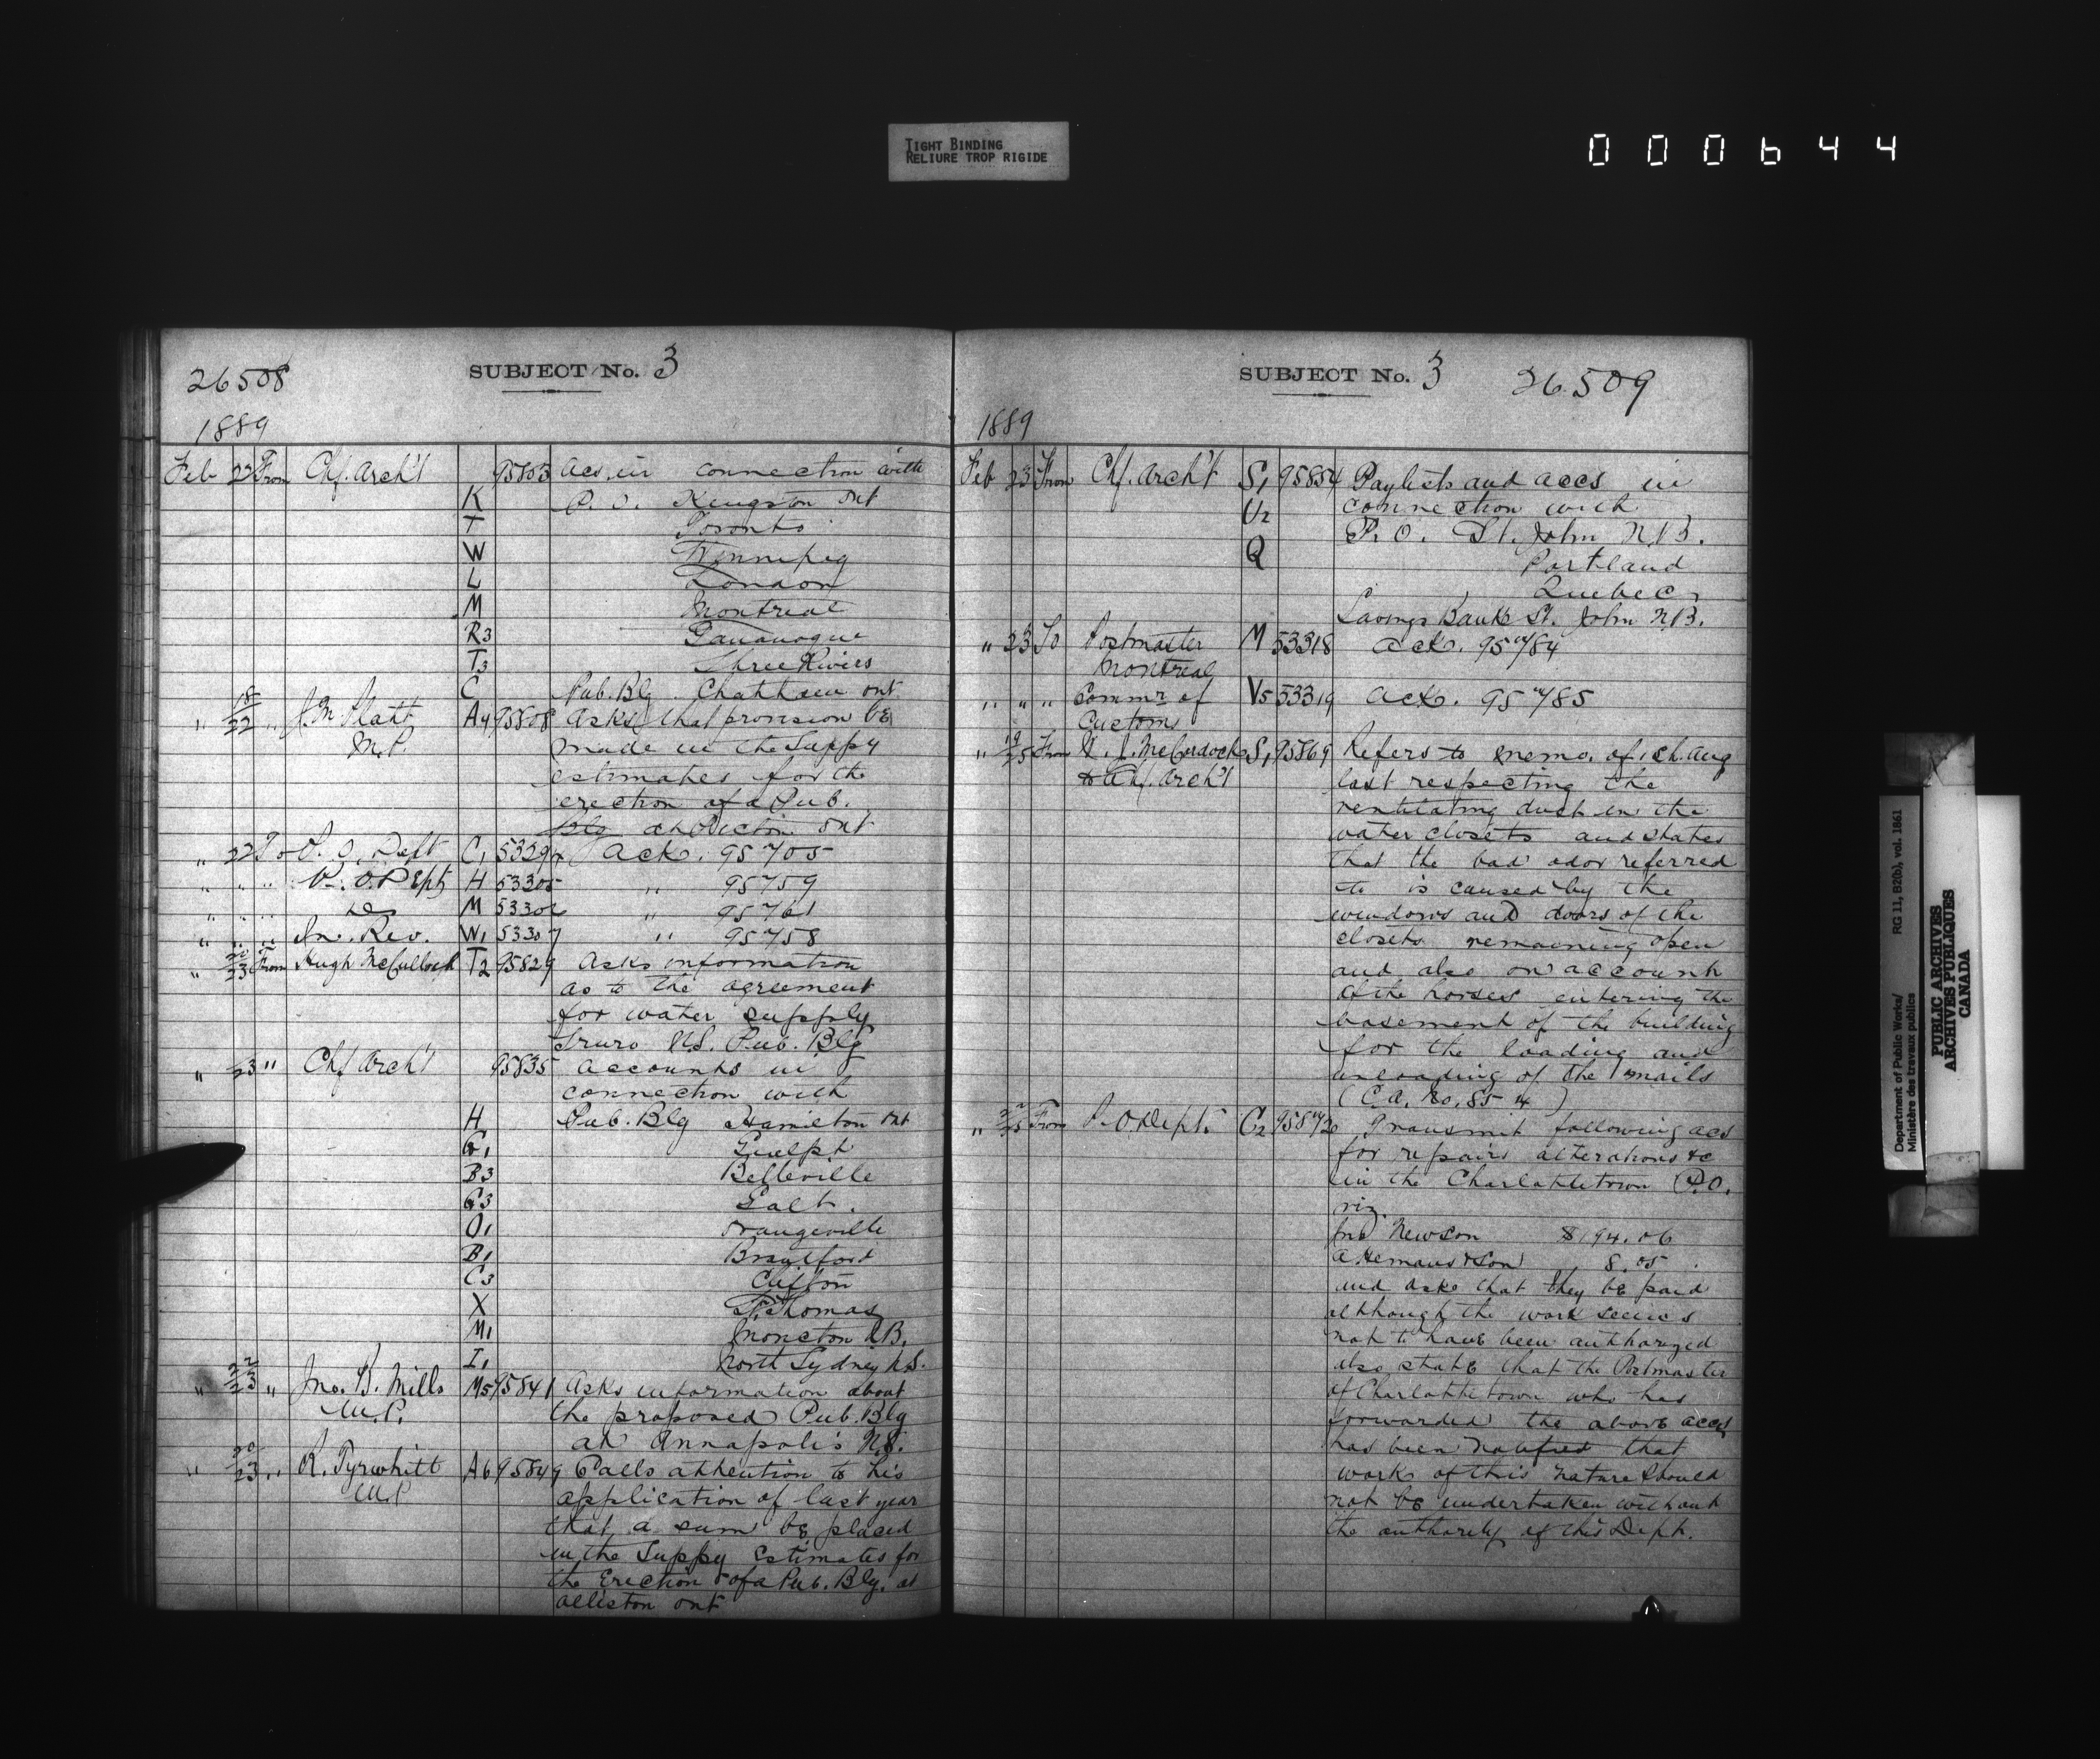 TIGHT BINDING
RELIURE TROP RIGIDE
000644
26508
SUBJECT No. 3
1889
Feb 22 From Chf. Arch't 95803 Acs. in connection with
K P. O. Kingston Ont
T Toronto
W Winnipeg
L London
M Montreal
R3 Gananoque
T3 Three Rivers
C Pub. Blg. Chatham Ont
" 18/22 " J. M. Platt A4 95808 Asks that provision be
M.P. made in the Suppy
estimates for the
erection of a Pub.
Blg at Picton Ont
" 22 To P. O. Dept C1 53294 Ack. 95705
" " " P. O. Dept H 53305 " 95759
" " " Do M 53306 " 95761
" " " In. Rev. W1 53307 " 95758
" 20/23 From Hugh McCulloch T2 95829 Asks information
as to the agreement
for water supply
Truro N.S. Pub. Blg
" 23 " Chf Arch't 95835 Accounts in
connection with
H Pub. Blg Hamilton Ont
G1 Guelph
B3 Belleville
G3 Galt.
O1 Orangeville
B1 Brantford
C3 Clifton
X St. Thomas
M1 Moncton N.B.
I1 North Sydney N.S.
" 22/23 " Jno. B. Mills M5 95841 Asks information about
M.P. the proposed Pub. Blg
at Annapolis N.S.
" 20/23 " R. Tyrwhitt A6 95849 Calls attention to his
M.P. application of last year
that a sum be placed
in the Suppy Estimates for
the Erection of a Pub. Blg. at
Alliston Ont
SUBJECT No. 3
26509
1889
Feb 23 From Chf. Arch't S1 95854 Paylists and accs in
U2 connection with
P. O. St. John N.B.
Q Portland
Quebec
Savings Bank St. John N.B.
" 23 To Postmaster M 53318 Ack. 95784
Montreal
" " " Commr of V5 53319 Ack. 95785
Customs
" 19/25 From J. McCordock S1 95869 Refers to memo. of Aug
to Chf. Arch't last respecting the
ventilating duct in the
water closets and states
that the bad odor referred
to is caused by the
windows and doors of the
closets remaining open
and also on account
of the horses entering the
basement of the building
for the loading and
unloading of the mails
(C.A. No. 8514)
" 22/25 From P. O. Dept. C2 95872 Transmit following acs
for repairs alterations &c
in the Charlottetown P.O.
viz.
Jno Newson $194.06
& Son 8.05
and asks that they be paid
although the work seems
not to have been authorized
also state that the Postmaster
of Charlottetown who has
forwarded the above accs
has been notified that
works of this nature should
not be undertaken without
the authority of this Dept.
Department of Public Works/ RG 11, B2(b), vol. 1861
Ministère des travaux publics
PUBLIC ARCHIVES
ARCHIVES PUBLIQUES
CANADA